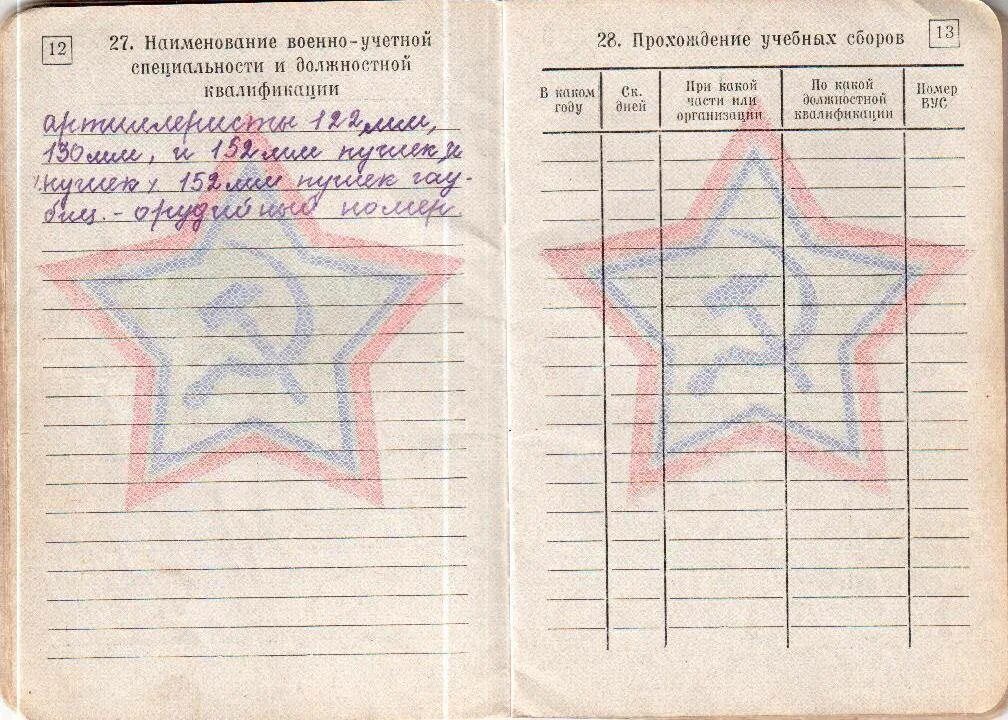 12
27. Наименование военно-учетной
специальности и должностной
квалификации
артиллеристы 122 мм,
130мм, и 152мм пушек и
пушек, 152мм пушек гау-
биц. - орудийный номер
13
28. Прохождение учебных сборов
В каком году
Ск. дней
При какой части или организации
По какой должностной квалификации
Номер ВУС